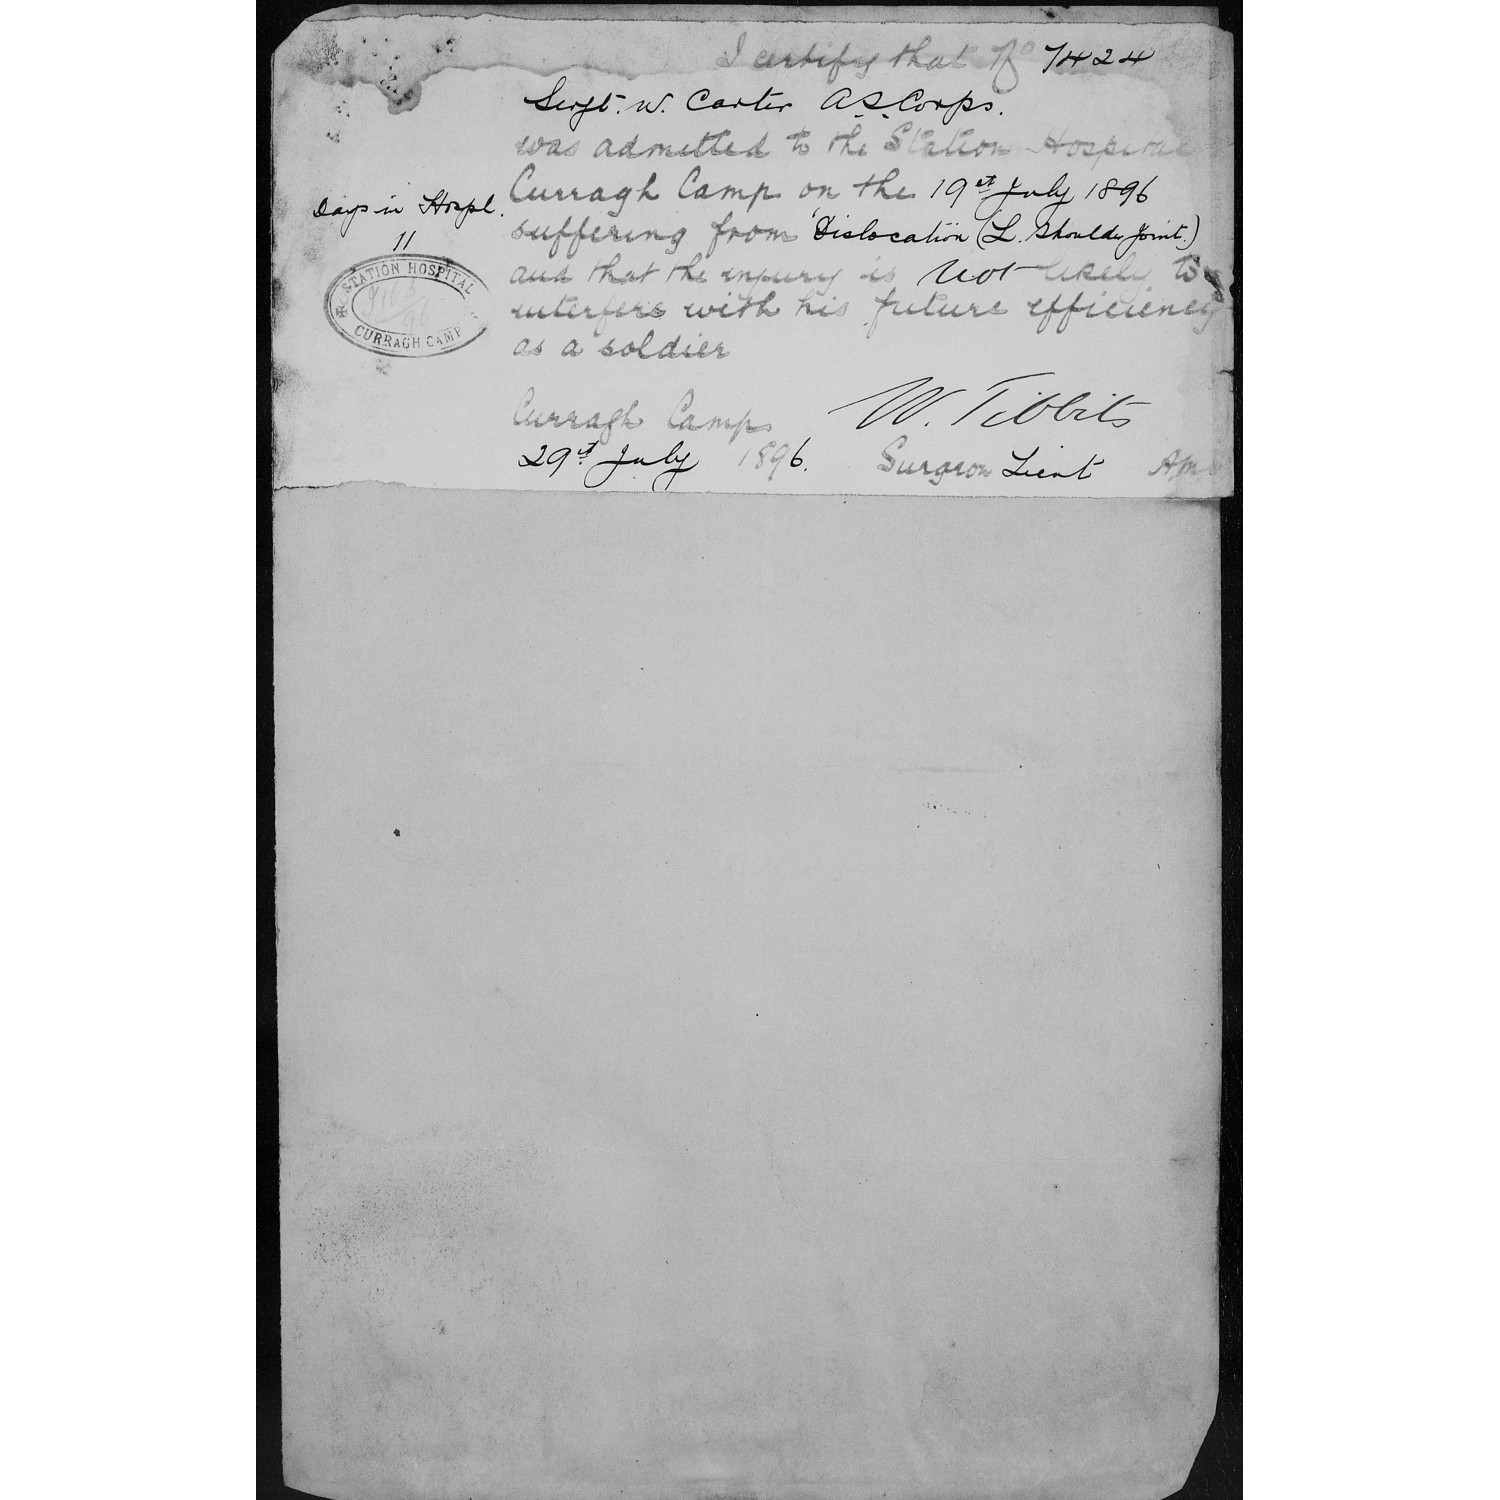 I certify that No 7424
Sergt. W. Carter A.S. Corps.
was admitted to the Station Hospital
Curragh Camp on the 19st July 1896
suffering from 'Dislocation (L. Shoulder Joint.)
and that the injury is not likely to
interfere with his future efficiency
as a soldier
Days in Hospl.
11
STATION HOSPITAL
CURRAGH CAMP
Curragh Camp
W. Tibbits
29st July 1896. Surgeon Lieut AMS